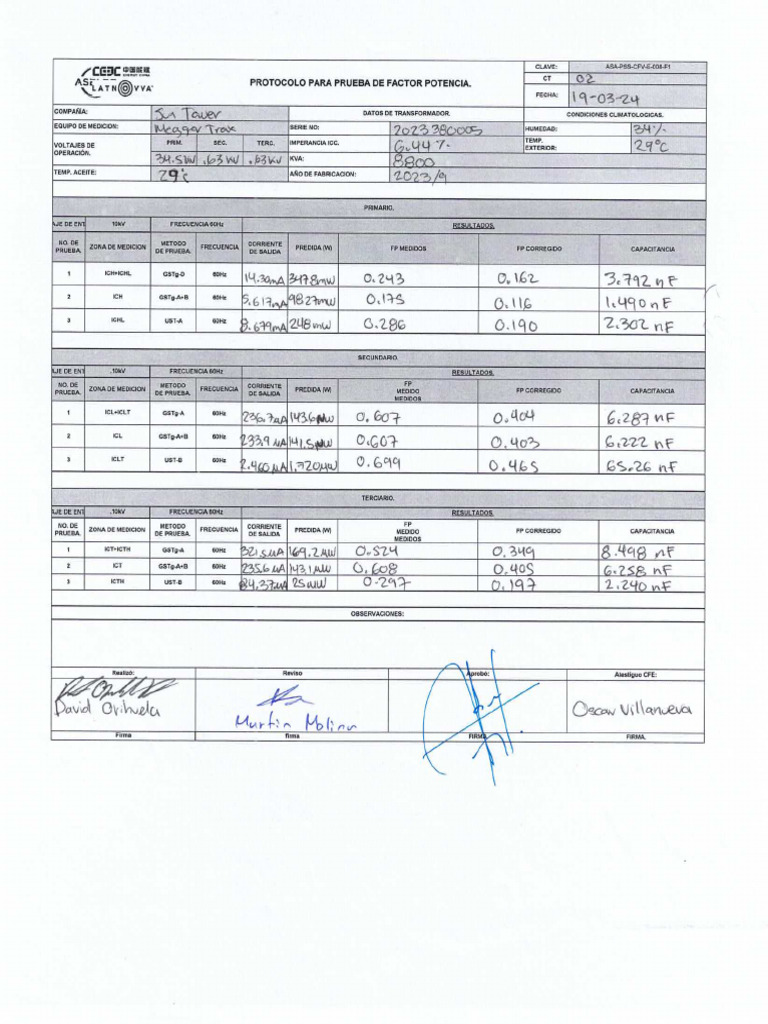 CEEC 中国能建
ENERGY CHINA
ASE
LATNOVVA
PROTOCOLO PARA PRUEBA DE FACTOR POTENCIA.
CLAVE: ASA-PSS-CFV-E-008-F1
CT 02
FECHA: 19-03-24
COMPAÑIA: Sun Tower DATOS DE TRANSFORMADOR. CONDICIONES CLIMATOLOGICAS.
EQUIPO DE MEDICION: Megger Trax SERIE NO: 2023380005 HUMEDAD: 34%
VOLTAJES DE OPERACIÓN. PRIM. SEC. TERC. IMPERANCIA IOC. 6.44% TEMP. EXTERIOR: 29°C
34.5kV .63kV .63kV KVA: 8800
TEMP. ACEITE: 29°c AÑO DE FABRICACION: 2023/9
PRIMARIO.
AJE DE ENT 10kV FRECUENCIA 60Hz RESULTADOS.
NO. DE PRUEBA. ZONA DE MEDICION METODO DE PRUEBA. FRECUENCIA CORRIENTE DE SALIDA PREDIDA (W) FP MEDIDOS FP CORREGIDO CAPACITANCIA
1 ICH+ICHL GSTg-D 60Hz 14.30mA 3478mW 0.243 0.162 3.792 nF
2 ICH GSTg-A+B 60Hz 5.617mA 9827mW 0.175 0.116 1.490 nF
3 ICHL UST-A 60Hz 8.679mA 248mW 0.286 0.190 2.302 nF
SECUNDARIO.
AJE DE ENT .10kV FRECUENCIA 60Hz RESULTADOS.
NO. DE PRUEBA. ZONA DE MEDICION METODO DE PRUEBA. FRECUENCIA CORRIENTE DE SALIDA PREDIDA (W) FP MEDIDO MEDIDOS FP CORREGIDO CAPACITANCIA
1 ICL+ICLT GSTg-A 60Hz 236.7uA 143.6uW 0.607 0.404 6.287 nF
2 ICL GSTg-A+B 60Hz 233.9uA 141.5uW 0.607 0.403 6.222 nF
3 ICLT UST-B 60Hz 2.460uA 1.720uW 0.699 0.465 65.26 nF
TERCIARIO.
AJE DE ENT .10kV FRECUENCIA 60Hz RESULTADOS.
NO. DE PRUEBA. ZONA DE MEDICION METODO DE PRUEBA. FRECUENCIA CORRIENTE DE SALIDA PREDIDA (W) FP MEDIDO MEDIDOS FP CORREGIDO CAPACITANCIA
1 ICT+ICTH GSTg-A 60Hz 321.5uA 169.2uW 0.524 0.349 8.498 nF
2 ICT GSTg-A+B 60Hz 235.6uA 143.1uW 0.608 0.405 6.258 nF
3 ICTH UST-B 60Hz 84.37uA 25uW 0.297 0.197 2.240 nF
OBSERVACIONES:
Realizó: Reviso Aprobó: Atestigue CFE:
David Orihuela Martin Molina Oscar Villanueva
Firma firma FIRMA. FIRMA.